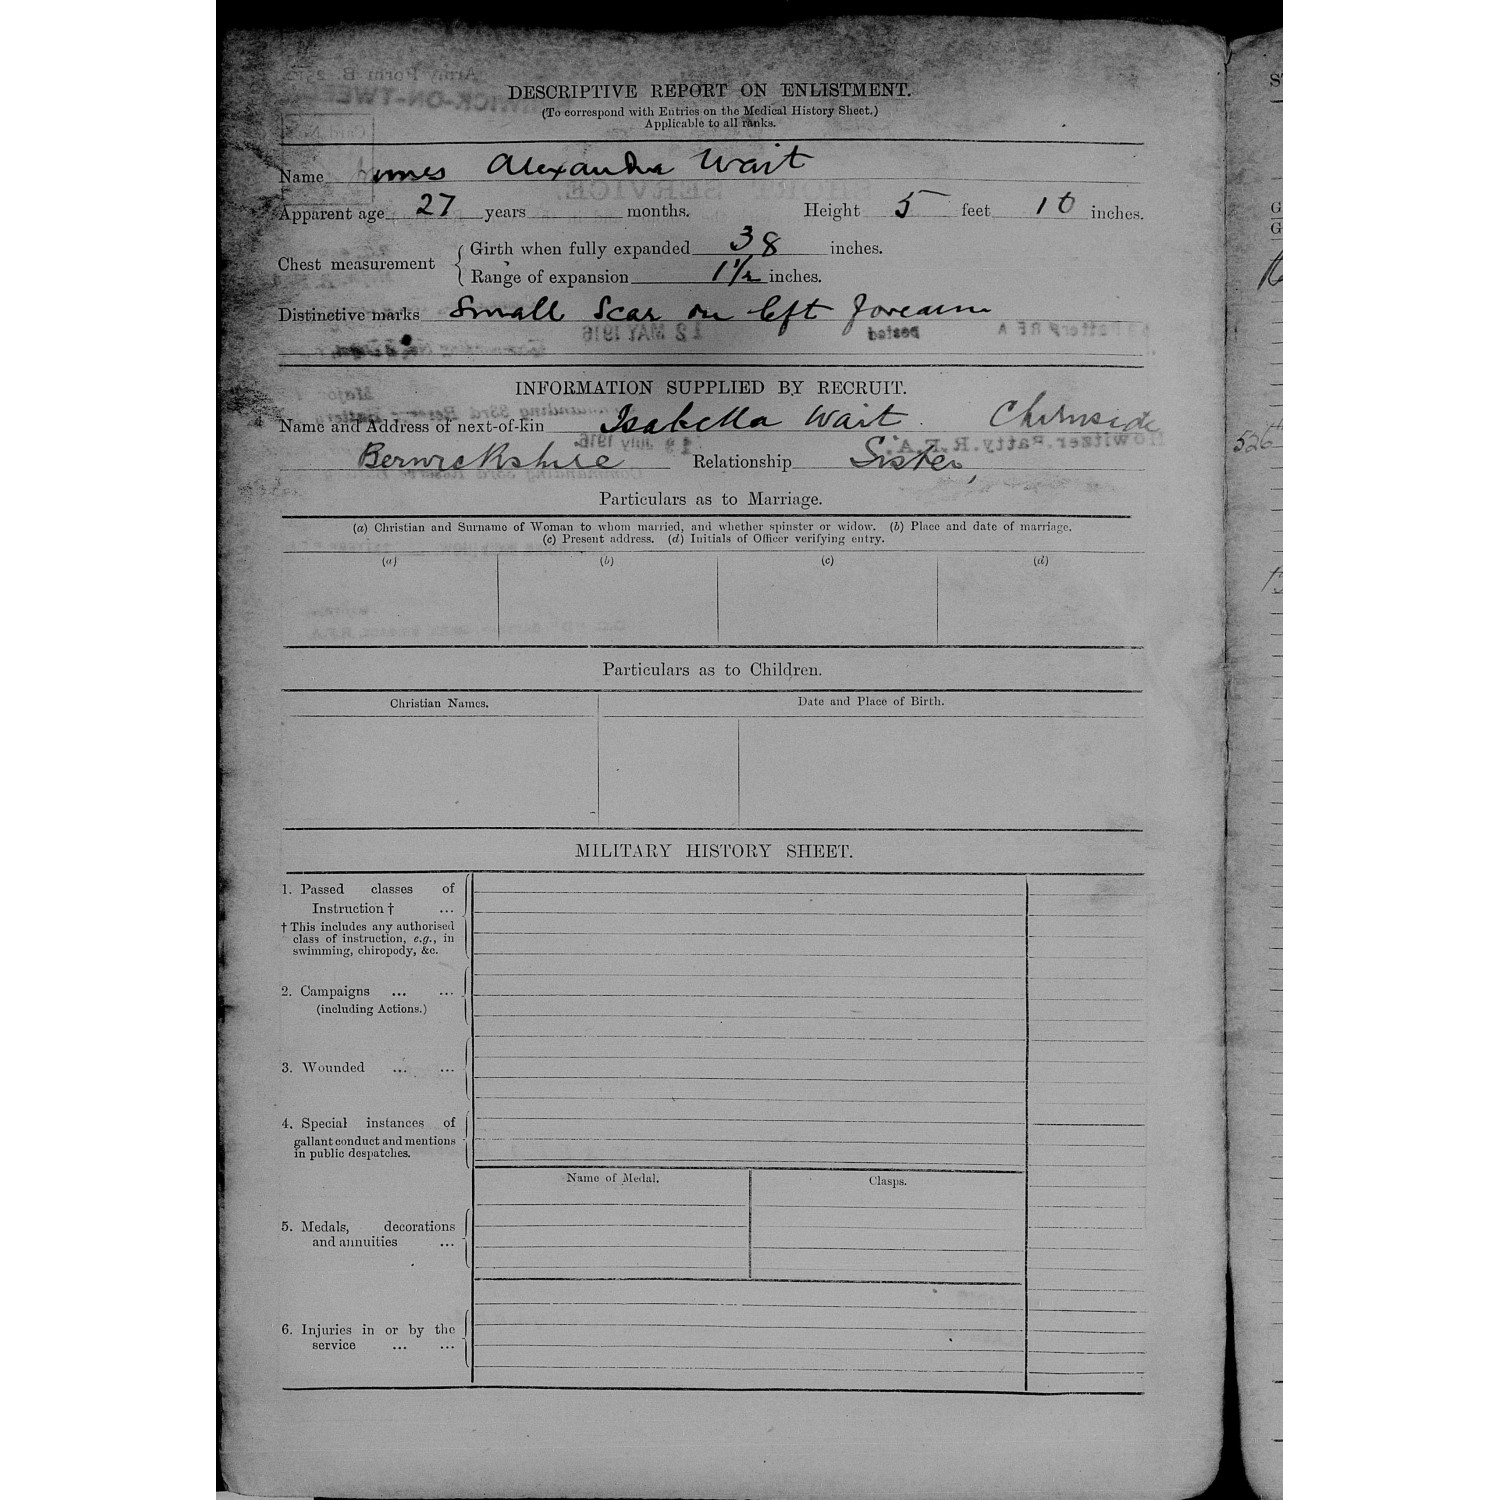 DESCRIPTIVE REPORT ON ENLISTMENT.
(To correspond with Entries on the Medical History Sheet.)
Applicable to all ranks.
Name James Alexander Wait
Apparent age 27 years months. Height 5 feet 10 inches.
Chest measurement { Girth when fully expanded 38 inches.
Range of expansion 1½ inches.
Distinctive marks Small Scar on left forearm
12 MAY 1916 posted
INFORMATION SUPPLIED BY RECRUIT.
Name and Address of next-of-kin Isabella Wait. Chirnside
Berwickshire Relationship Sister,
Particulars as to Marriage.
(a) Christian and Surname of Woman to whom married, and whether spinster or widow. (b) Place and date of marriage.
(c) Present address. (d) Initials of Officer verifying entry.
(a) (b) (c) (d)
Particulars as to Children.
Christian Names. Date and Place of Birth.
MILITARY HISTORY SHEET.
1. Passed classes of
Instruction † ...
† This includes any authorised
class of instruction, e.g., in
swimming, chiropody, &c.
2. Campaigns ... ...
(including Actions.)
3. Wounded ... ...
4. Special instances of
gallant conduct and mentions
in public despatches.
Name of Medal. Clasps.
5. Medals, decorations
and annuities ...
6. Injuries in or by the
service ... ...